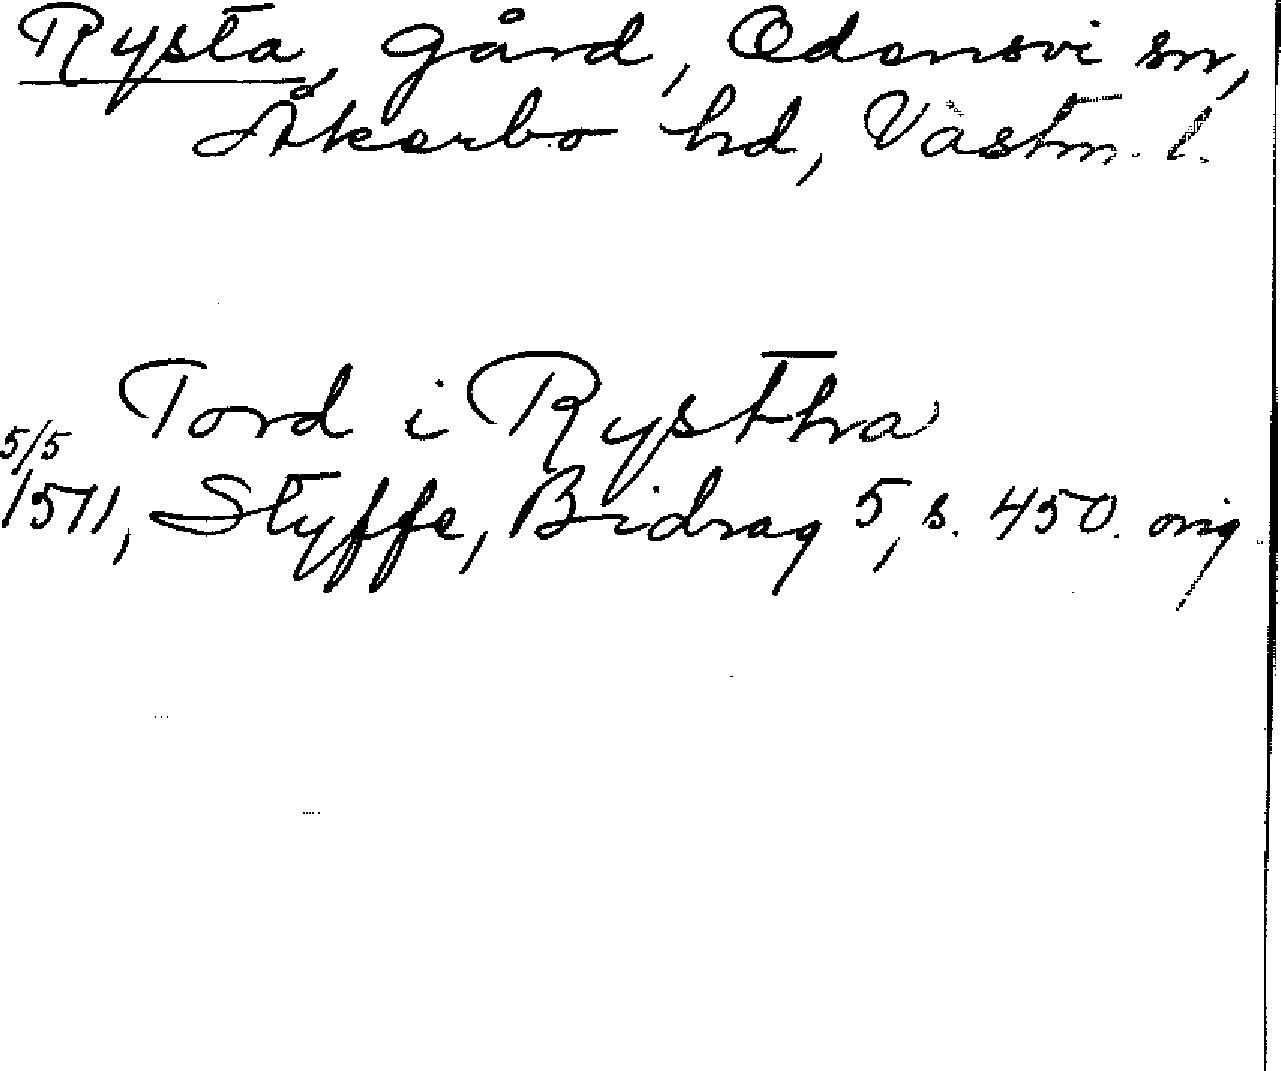 Rysta, gård, Odensvi sn,
Åkerbo hd, Västm. l.
Tord i Rystha
5/5
1511, Styffe, Bidrag 5, s. 450. orig